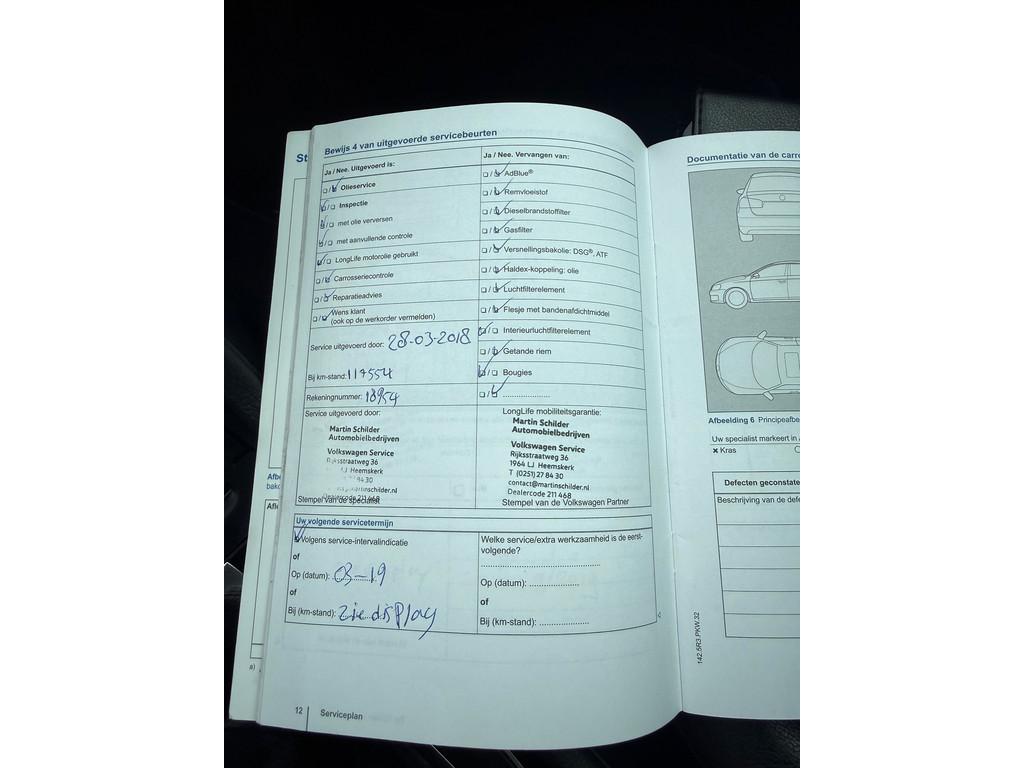 Bewijs 4 van uitgevoerde servicebeurten
Ja / Nee. Uitgevoerd is:
❑ / ❑ Olieservice
❑ / ❑ Inspectie
❑ / ❑ met olie verversen
❑ / ❑ met aanvullende controle
❑ / ❑ LongLife motorolie gebruikt
❑ / ❑ Carrosseriecontrole
❑ / ❑ Reparatieadvies
❑ / ❑ Wens klant
(ook op de werkorder vermelden)
Service uitgevoerd door: 28-03-2018
Bij km-stand: 117554
Rekeningnummer: 18954
Ja / Nee. Vervangen van:
❑ / ❑ AdBlue®
❑ / ❑ Remvloeistof
❑ / ❑ Dieselbrandstoffilter
❑ / ❑ Gasfilter
❑ / ❑ Versnellingsbakolie: DSG®, ATF
❑ / ❑ Haldex-koppeling: olie
❑ / ❑ Luchtfilterelement
❑ / ❑ Flesje met bandenafdichtmiddel
❑ / ❑ Interieurluchtfilterelement
❑ / ❑ Getande riem
❑ / ❑ Bougies
❑ / ❑ ....................
Service uitgevoerd door:
Martin Schilder
Automobielbedrijven
Volkswagen Service
Rijksstraatweg 36
LJ Heemskerk
94 30
martinschilder.nl
Dealercode 211468
Stempel van de specialist
LongLife mobiliteitsgarantie:
Martin Schilder
Automobielbedrijven
Volkswagen Service
Rijksstraatweg 36
1964 LJ Heemskerk
T (0251) 27 84 30
contact@martinschilder.nl
Dealercode 211 468
Stempel van de Volkswagen Partner
Uw volgende servicetermijn
Volgens service-intervalindicatie
of
Op (datum): 03-19
of
Bij (km-stand): zie display
Welke service/extra werkzaamheid is de eerst-
volgende?
....................
Op (datum): ....................
of
Bij (km-stand): ....................
12 Serviceplan
St
Afbe
bako
a)
Documentatie van de carro
Afbeelding 6 Principeafbe
Uw specialist markeert in
× Kras
Defecten geconstate
Beschrijving van de defe
142.5R3.PKW.32